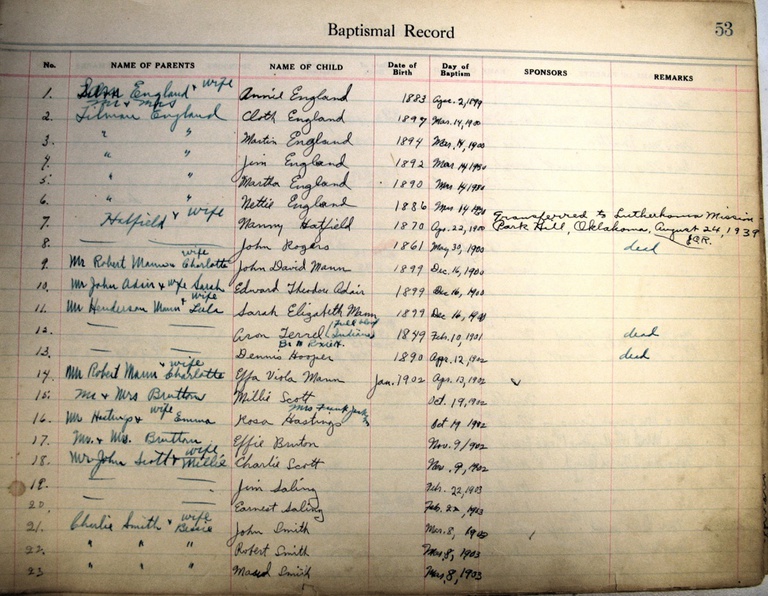 Baptismal Record 53
No. NAME OF PARENTS NAME OF CHILD Date of Birth Day of Baptism SPONSORS REMARKS
1. England & wife Annie England 1883 2, 1899
Mr & Mrs
2. Tilman England Cloth England 1897 Mar. 14, 1900
3. " " Martin England 1894 Mar. 14, 1900
4. " " Jim England 1892 Mar 14, 1900
5. " " Martha England 1890 Mar 14, 1900
6. " " Nettie England 1886 Mar 14, 1900
7. Hatfield & wife Nanny Hatfield 1870 Apr. 22, 1900 Transferred to Lutherhoma Mission - Park Hill, Oklahoma, August 24, 1939
8. — — John Rogers 1861 May 30, 1900 ded
9. Mr Robert Mann & wife Charlotte John David Mann 1899 Dec. 16, 1900
10. Mr John Adair & wife Sarah Edward Theodore Adair 1899 Dec 16, 1900
11. Mr Henderson Mann & wife Lula Sarah Elizabeth Mann 1899 Dec 16,
12. — — Aron Terrel (Full blood Indian) 1849 Feb. 10, 1901 dead
13. — — Dennis Hooper 1890 Apr. 12, 1902 dead
14. Mr Robert Mann & wife Charlotte Effa Viola Mann Jan. 1902 Apr. 13, 1902
15. Mr & Mrs Brutton Millie Scott Oct. 19, 1902
16. Mr Hastings & wife Emma Rosa Hastings Mrs Frank Oct 19, 1902
17. Mr. & Mrs. Brutton Effie Bruton Nov. 9, 1902
18. Mr John Scott & wife Millie Charlie Scott Nov. 9, 1902
19. — — Jim Saling Feb. 22, 1903
20. — — Earnest Saling Feb. 22, 1903
21. Charlie Smith & wife Bessie John Smith Mar. 8, 1903
22. " " " Robert Smith Mar. 8, 1903
23 " " " Smith Mar. 8, 1903